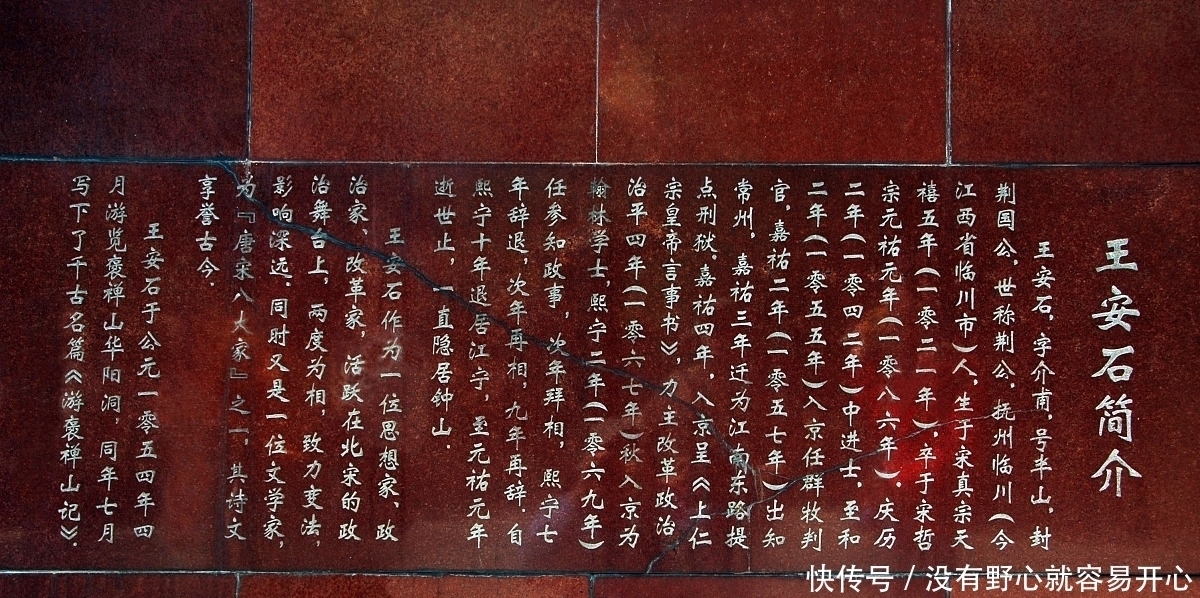 王安石简介
王安石，字介甫，号半山，封
荆国公，世称荆公，抚州临川（今
江西省临川市）人，生于宋真宗天
禧五年（一零二一年），卒于宋哲
宗元祐元年（一零八六年），庆历
二年（一零四二年）中进士，至和
二年（一零五五年）入京任群牧判
官，嘉祐二年（一零五七年）出知
常州，嘉祐三年迁为江南东路提
点刑狱，嘉祐四年，入京呈《上仁
宗皇帝言事书》，力主改革政治
治平四年（一零六七年）秋入京为
翰林学士，熙宁二年（一零六九年）
任参知政事，次年拜相，熙宁七
年辞退，次年再相，九年再辞，自
熙宁十年退居江宁，至元祐元年
逝世止，一直隐居钟山．
王安石作为一位思想家、政
治家、改革家，活跃在北宋的政
治舞台上，两度为相，致力变法，
影响深远．同时又是一位文学家，
为『唐宋八大家』之一，其诗文
享誉古今．
王安石于公元一零五四年四
月游览褒禅山华阳洞，同年七月
写下了千古名篇《游褒禅山记》．
快传号/没有野心就容易开心